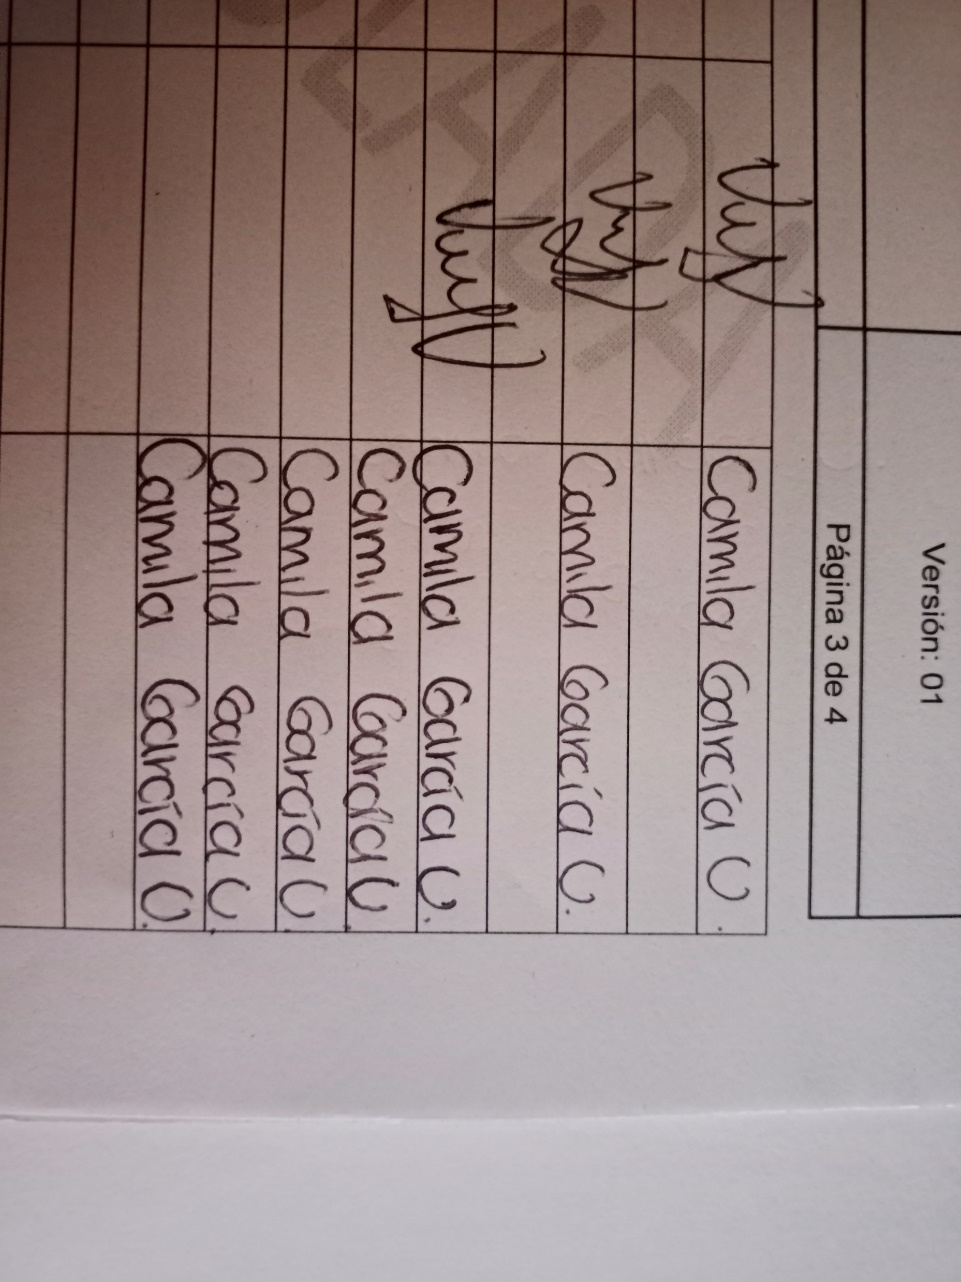 Versión: 01
Página 3 de 4
Camila García U.
Camila García U.
Camila García U.
Camila García U.
Camila García U.
Camila García U.
Camila García U.